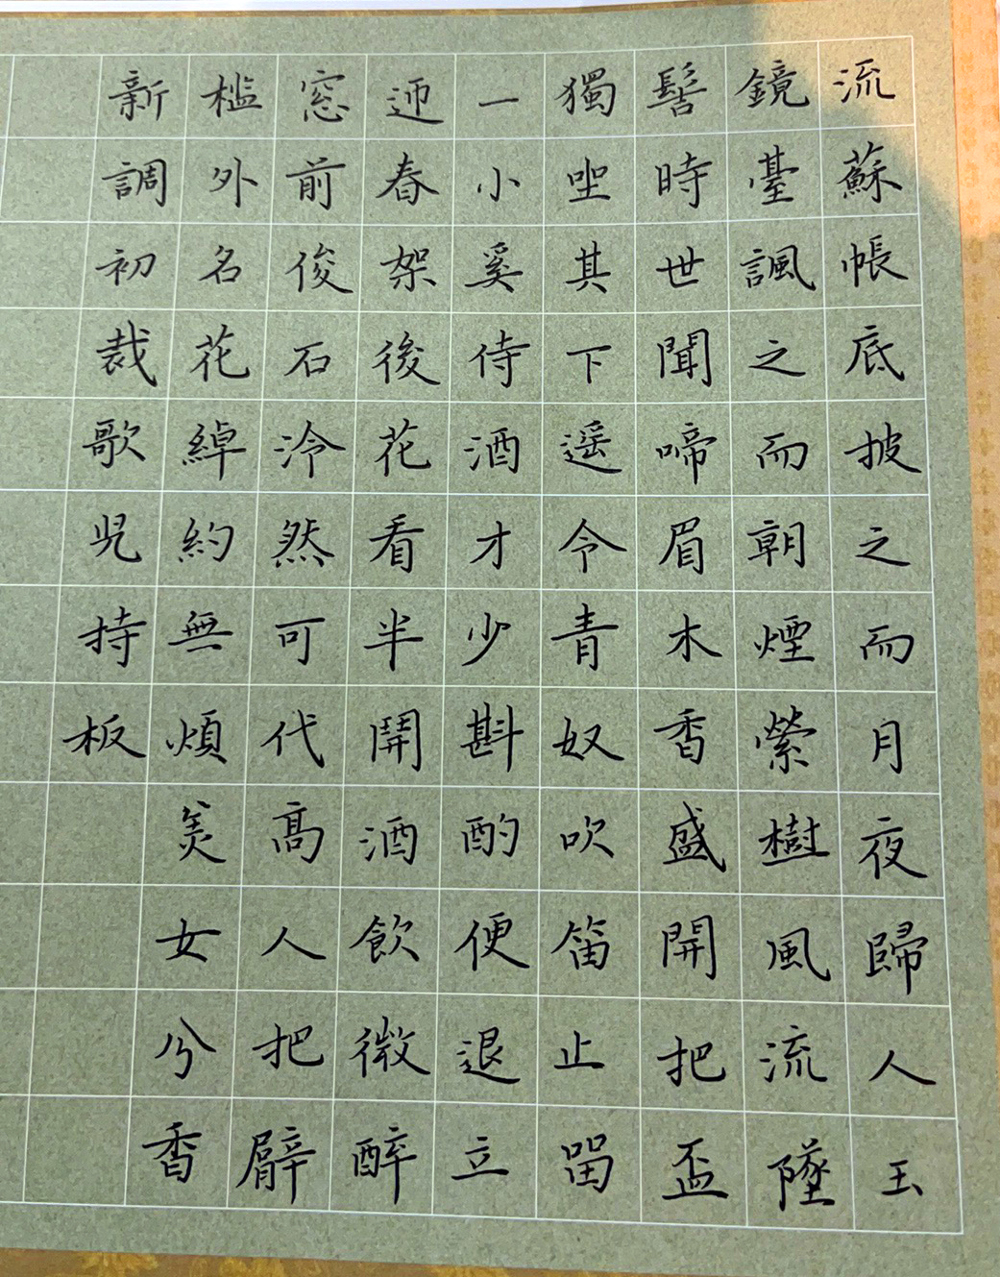 流蘇帳底披之而月夜歸人玉
鏡臺諷之而朝煙縈樹風流墜
髻時世聞啼眉木香盛開把盃
獨坐其下遥令青奴吹笛止留
一小奚侍酒才少斟酌便退立
迎春架後花看半開酒飲微醉
窓前俊石泠然可代高人把臂
檻外名花綽約無煩美女分香
新調初裁歌兒持板